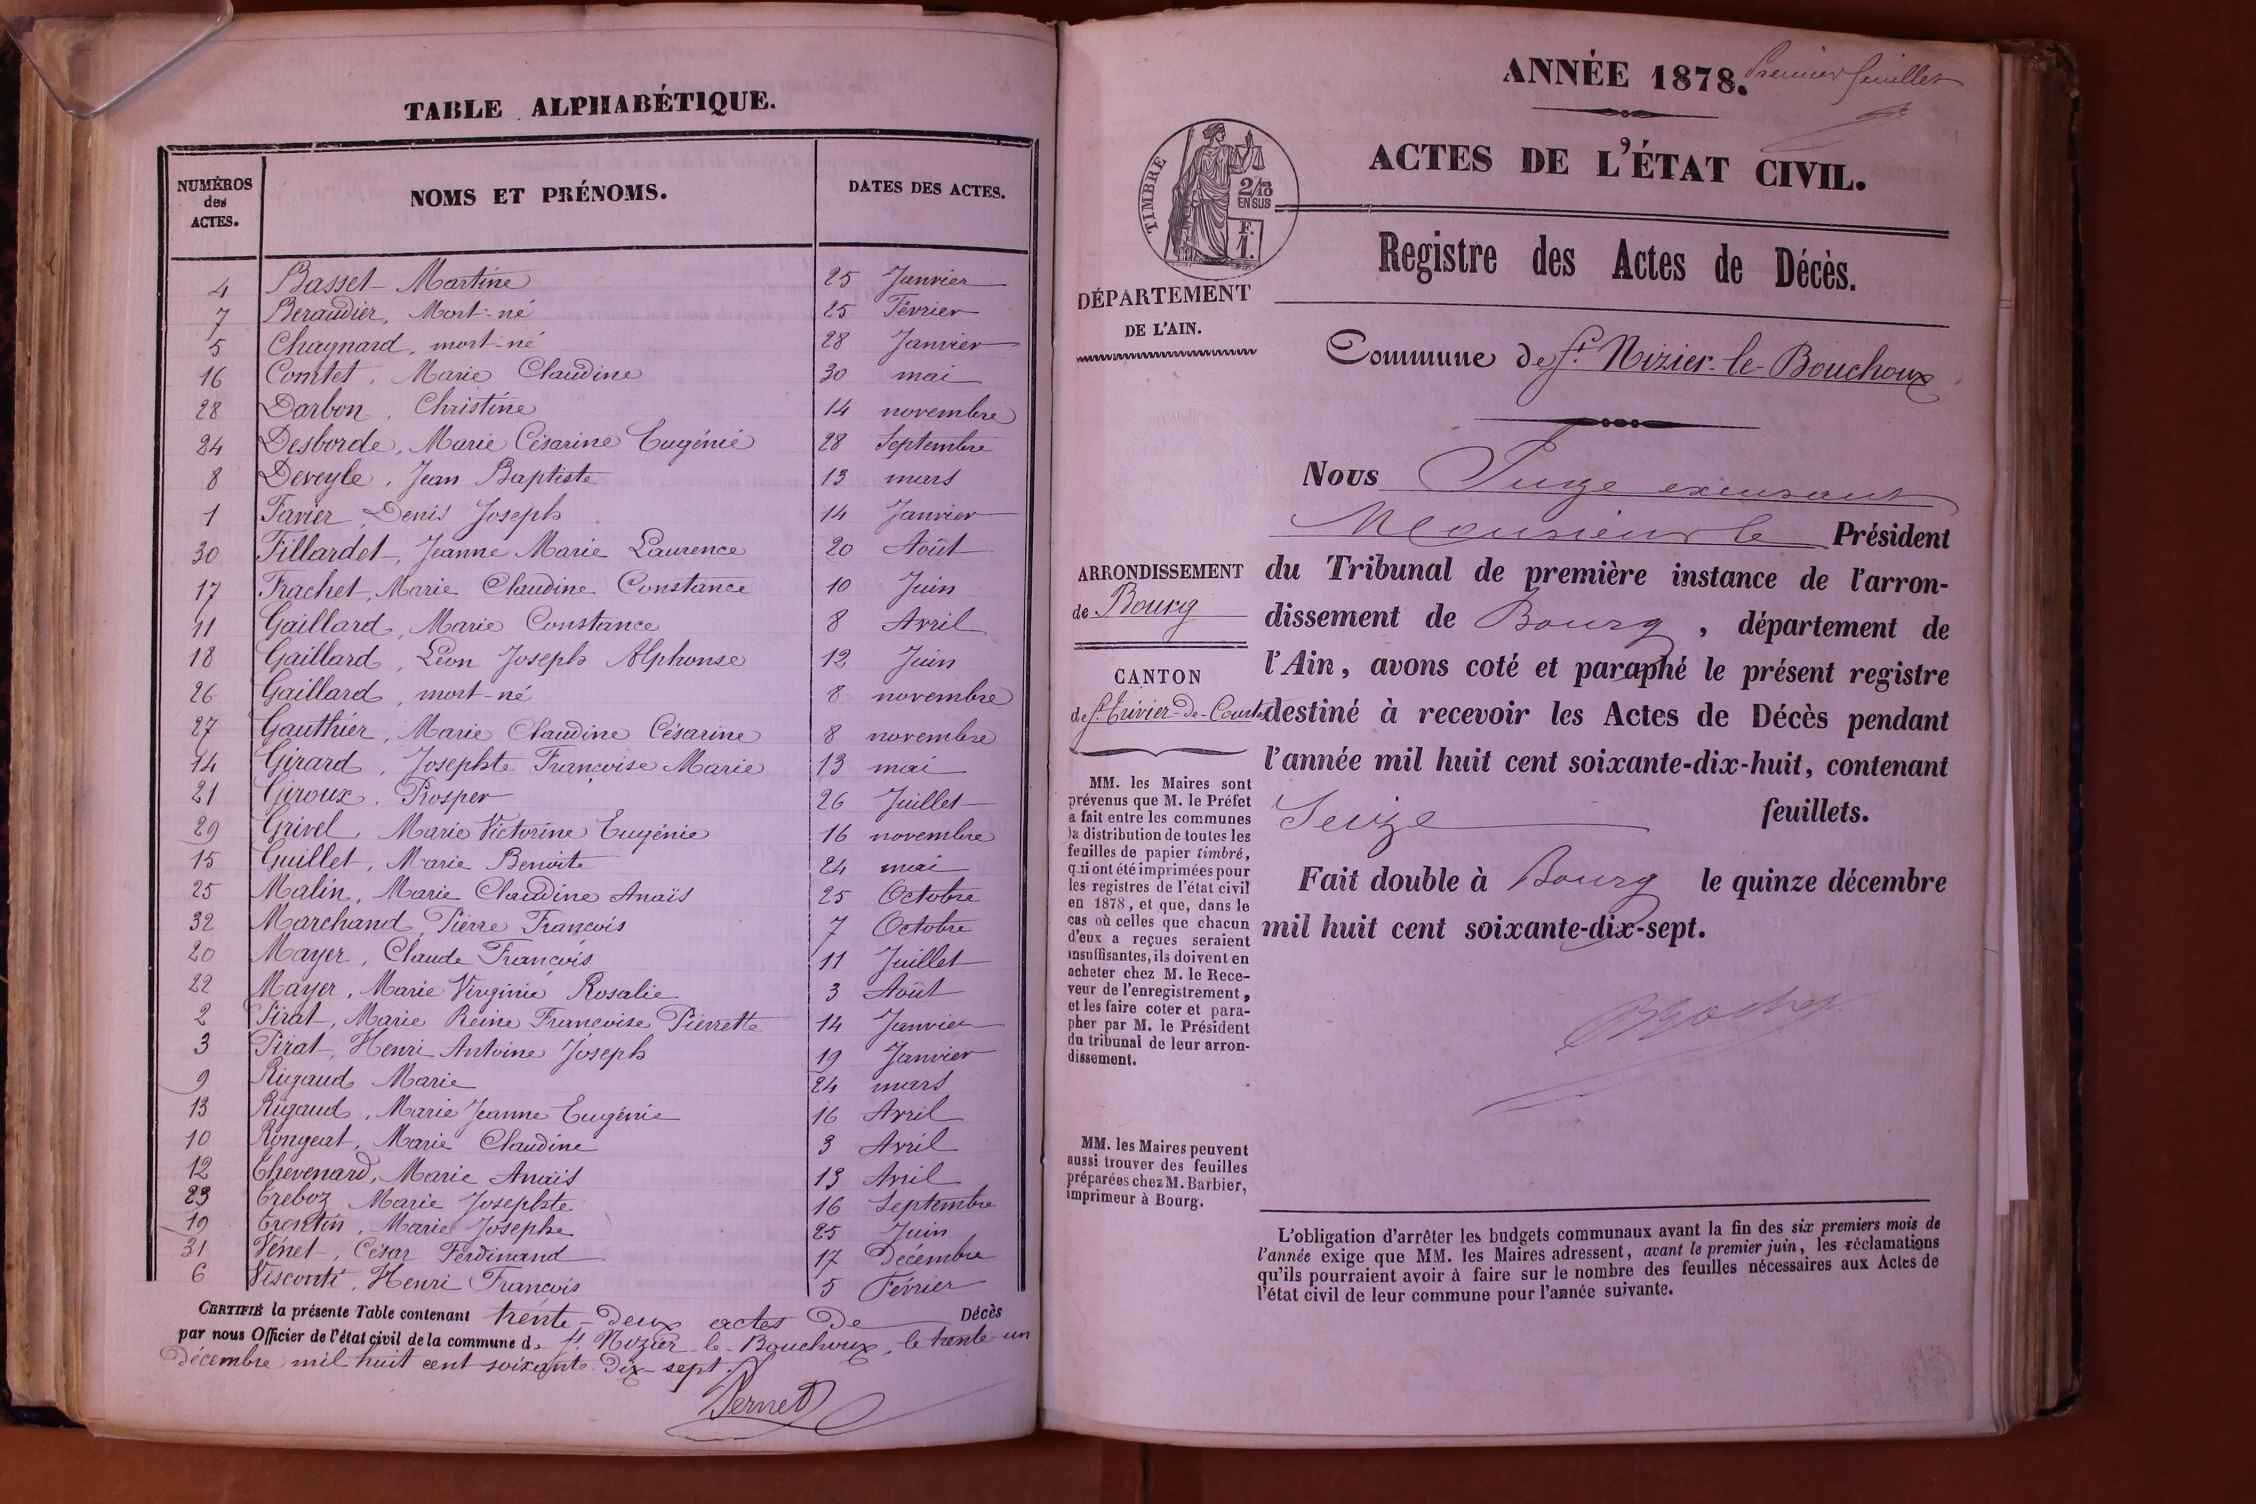 TABLE ALPHABÉTIQUE.
NUMÉROS des ACTES. NOMS ET PRÉNOMS. DATES DES ACTES.
4 Basset Martine 25 Janvier
7 Beraudier, Mort-né 25 Février
5 Chagnard, mort-né 28 Janvier
16 Comtet, Marie Claudine 30 mai
28 Darbon, Christine 14 novembre
24 Desborde, Marie Césarine Eugénie 28 Septembre
8 Deveyle, Jean Baptiste 13 mars
1 Favier, Denis Joseph 14 Janvier
30 Fillardet, Jeanne Marie Laurence 20 Août
17 Frachet, Marie Claudine Constance 10 Juin
11 Gaillard, Marie Constance 8 Avril
18 Gaillard, Léon Joseph Alphonse 12 Juin
26 Gaillard, mort-né 8 novembre
27 Gauthier, Marie Claudine Césarine 8 novembre
14 Girard, Josephte Françoise Marie 13 mai
21 Giroux, Prosper 26 Juillet
29 Grivel, Marie Victorine Eugénie 16 novembre
15 Guillet, Marie Benoite 24 mai
25 Malin, Marie Claudine Anaïs 25 Octobre
32 Marchand, Pierre François 7 Octobre
20 Mayer, Claude François 11 Juillet
22 Mayer, Marie Virginie Rosalie 3 Août
2 Pirat, Marie Reine Françoise Pierrette 14 Janvier
3 Pirat, Henri Antoine Joseph 19 Janvier
9 Rigaud Marie 24 mars
13 Rigaud, Marie Jeanne Eugénie 16 Avril
10 Rongeat, Marie Claudine 3 Avril
12 Thevenard, Marie Anaïs 13 Avril
23 Treboz Marie Josephte 16 Septembre
19 Trontin, Marie Josephe 25 Juin
31 Vénet, César Ferdinand 17 Décembre
6 Visconti, Henri François 5 Février
CERTIFIÉ la présente Table contenant trente-deux actes de Décès
par nous Officier de l'état civil de la commune d. St Nizier-le-Bouchoux, le trente un
Décembre mil huit cent soixante-dix-sept
Pernet
ANNÉE 1878. Premier feuillet
ACTES DE L'ÉTAT CIVIL.
TIMBRE
2/10 EN SUS
F. 1.
Registre des Actes de Décès.
DÉPARTEMENT
DE L'AIN.
Commune de St Nizier-le-Bouchoux
ARRONDISSEMENT
de Bourg
CANTON
de St Trivier-de-Courtes
MM. les Maires sont
prévenus que M. le Préfet
a fait entre les communes
la distribution de toutes les
feuilles de papier timbré,
qui ont été imprimées pour
les registres de l'état civil
en 1878, et que, dans le
cas où celles que chacun
d'eux a reçues seraient
insuffisantes, ils doivent en
acheter chez M. le Rece-
veur de l'enregistrement,
et les faire coter et para-
pher par M. le Président
du tribunal de leur arron-
dissement.
MM. les Maires peuvent
aussi trouver des feuilles
préparées chez M. Barbier,
imprimeur à Bourg.
Nous Juge excusant
Monsieur le Président
du Tribunal de première instance de l'arron-
dissement de Bourg, département de
l'Ain, avons coté et paraphé le présent registre
destiné à recevoir les Actes de Décès pendant
l'année mil huit cent soixante-dix-huit, contenant
Seize feuillets.
Fait double à Bourg le quinze décembre
mil huit cent soixante-dix-sept.
L'obligation d'arrêter les budgets communaux avant la fin des six premiers mois de
l'année exige que MM. les Maires adressent, avant le premier juin, les réclamations
qu'ils pourraient avoir à faire sur le nombre des feuilles nécessaires aux Actes de
l'état civil de leur commune pour l'année suivante.